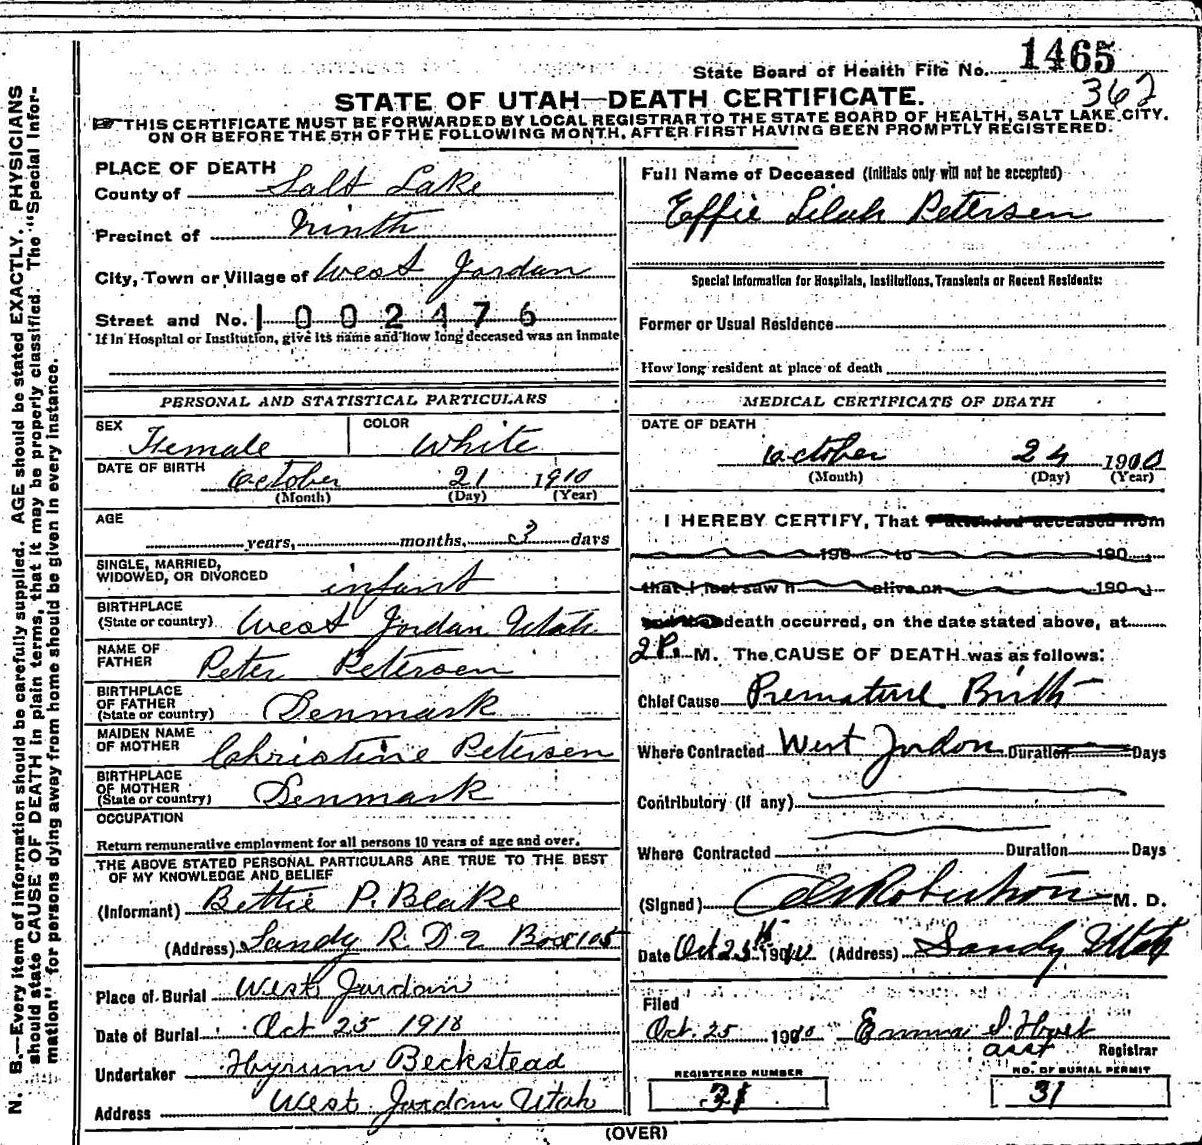 State Board of Health File No. 1465
362
STATE OF UTAH—DEATH CERTIFICATE.
THIS CERTIFICATE MUST BE FORWARDED BY LOCAL REGISTRAR TO THE STATE BOARD OF HEALTH, SALT LAKE CITY.
ON OR BEFORE THE 5TH OF THE FOLLOWING MONTH, AFTER FIRST HAVING BEEN PROMPTLY REGISTERED.
N. B.—Every item of information should be carefully supplied. AGE should be stated EXACTLY. PHYSICIANS
should state CAUSE OF DEATH in plain terms, that it may be properly classified. The "Special Infor-
mation" for persons dying away from home should be given in every instance.
PLACE OF DEATH
County of Salt Lake
Precinct of Ninth
City, Town or Village of West Jordan
Street and No. 1002476
If in Hospital or Institution, give its name and how long deceased was an inmate
PERSONAL AND STATISTICAL PARTICULARS
SEX Female COLOR White
DATE OF BIRTH October 21 1910
(Month) (Day) (Year)
AGE
years, months, 3 days
SINGLE, MARRIED,
WIDOWED, OR DIVORCED infant
BIRTHPLACE
(State or country) West Jordan Utah
NAME OF
FATHER Peter Petersen
BIRTHPLACE
OF FATHER
(State or country) Denmark
MAIDEN NAME
OF MOTHER Christine Petersen
BIRTHPLACE
OF MOTHER
(State or country) Denmark
OCCUPATION
Return remunerative employment for all persons 10 years of age and over.
THE ABOVE STATED PERSONAL PARTICULARS ARE TRUE TO THE BEST
OF MY KNOWLEDGE AND BELIEF
(Informant) Bettie P. Blake
(Address) Sandy R. D 2 Box 105
Place of Burial West Jordan
Date of Burial Oct 25 1910
Undertaker Hyrum Beckstead
Address West Jordan Utah
Full Name of Deceased (Initials only will not be accepted)
Effie Lilah Petersen
Special Information for Hospitals, Institutions, Transients or Recent Residents:
Former or Usual Residence
How long resident at place of death
MEDICAL CERTIFICATE OF DEATH
DATE OF DEATH
October 24 1910
(Month) (Day) (Year)
I HEREBY CERTIFY, That I attended deceased from
190 to 190
that I last saw h alive on 190
death occurred, on the date stated above, at
2 P. M. The CAUSE OF DEATH was as follows:
Chief Cause Premature Birth
Where Contracted West Jordon Duration Days
Contributory (if any)
Where Contracted Duration Days
(Signed) Robertson M. D.
Date Oct 25th 1910 (Address) Sandy Utah
Filed
Oct. 25 1910 Emma S.
asst Registrar
REGISTERED NUMBER NO. OF BURIAL PERMIT
31 31
(OVER)